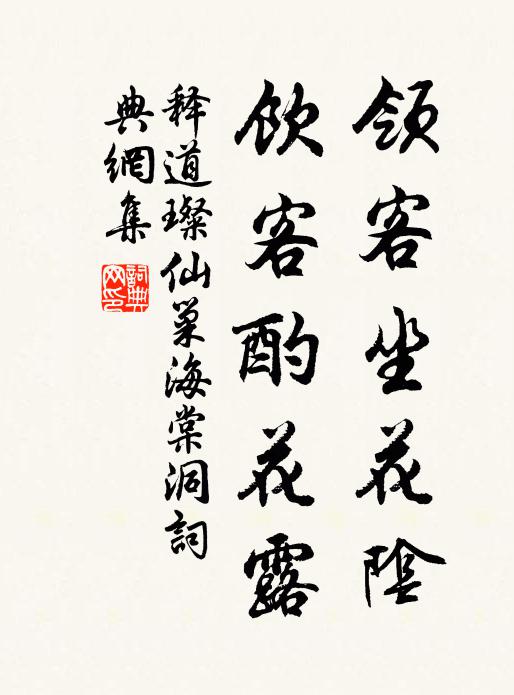 領客坐花陰
飲客酌花露
釋道璨仙巢海棠洞詞
典網集
詞典網印